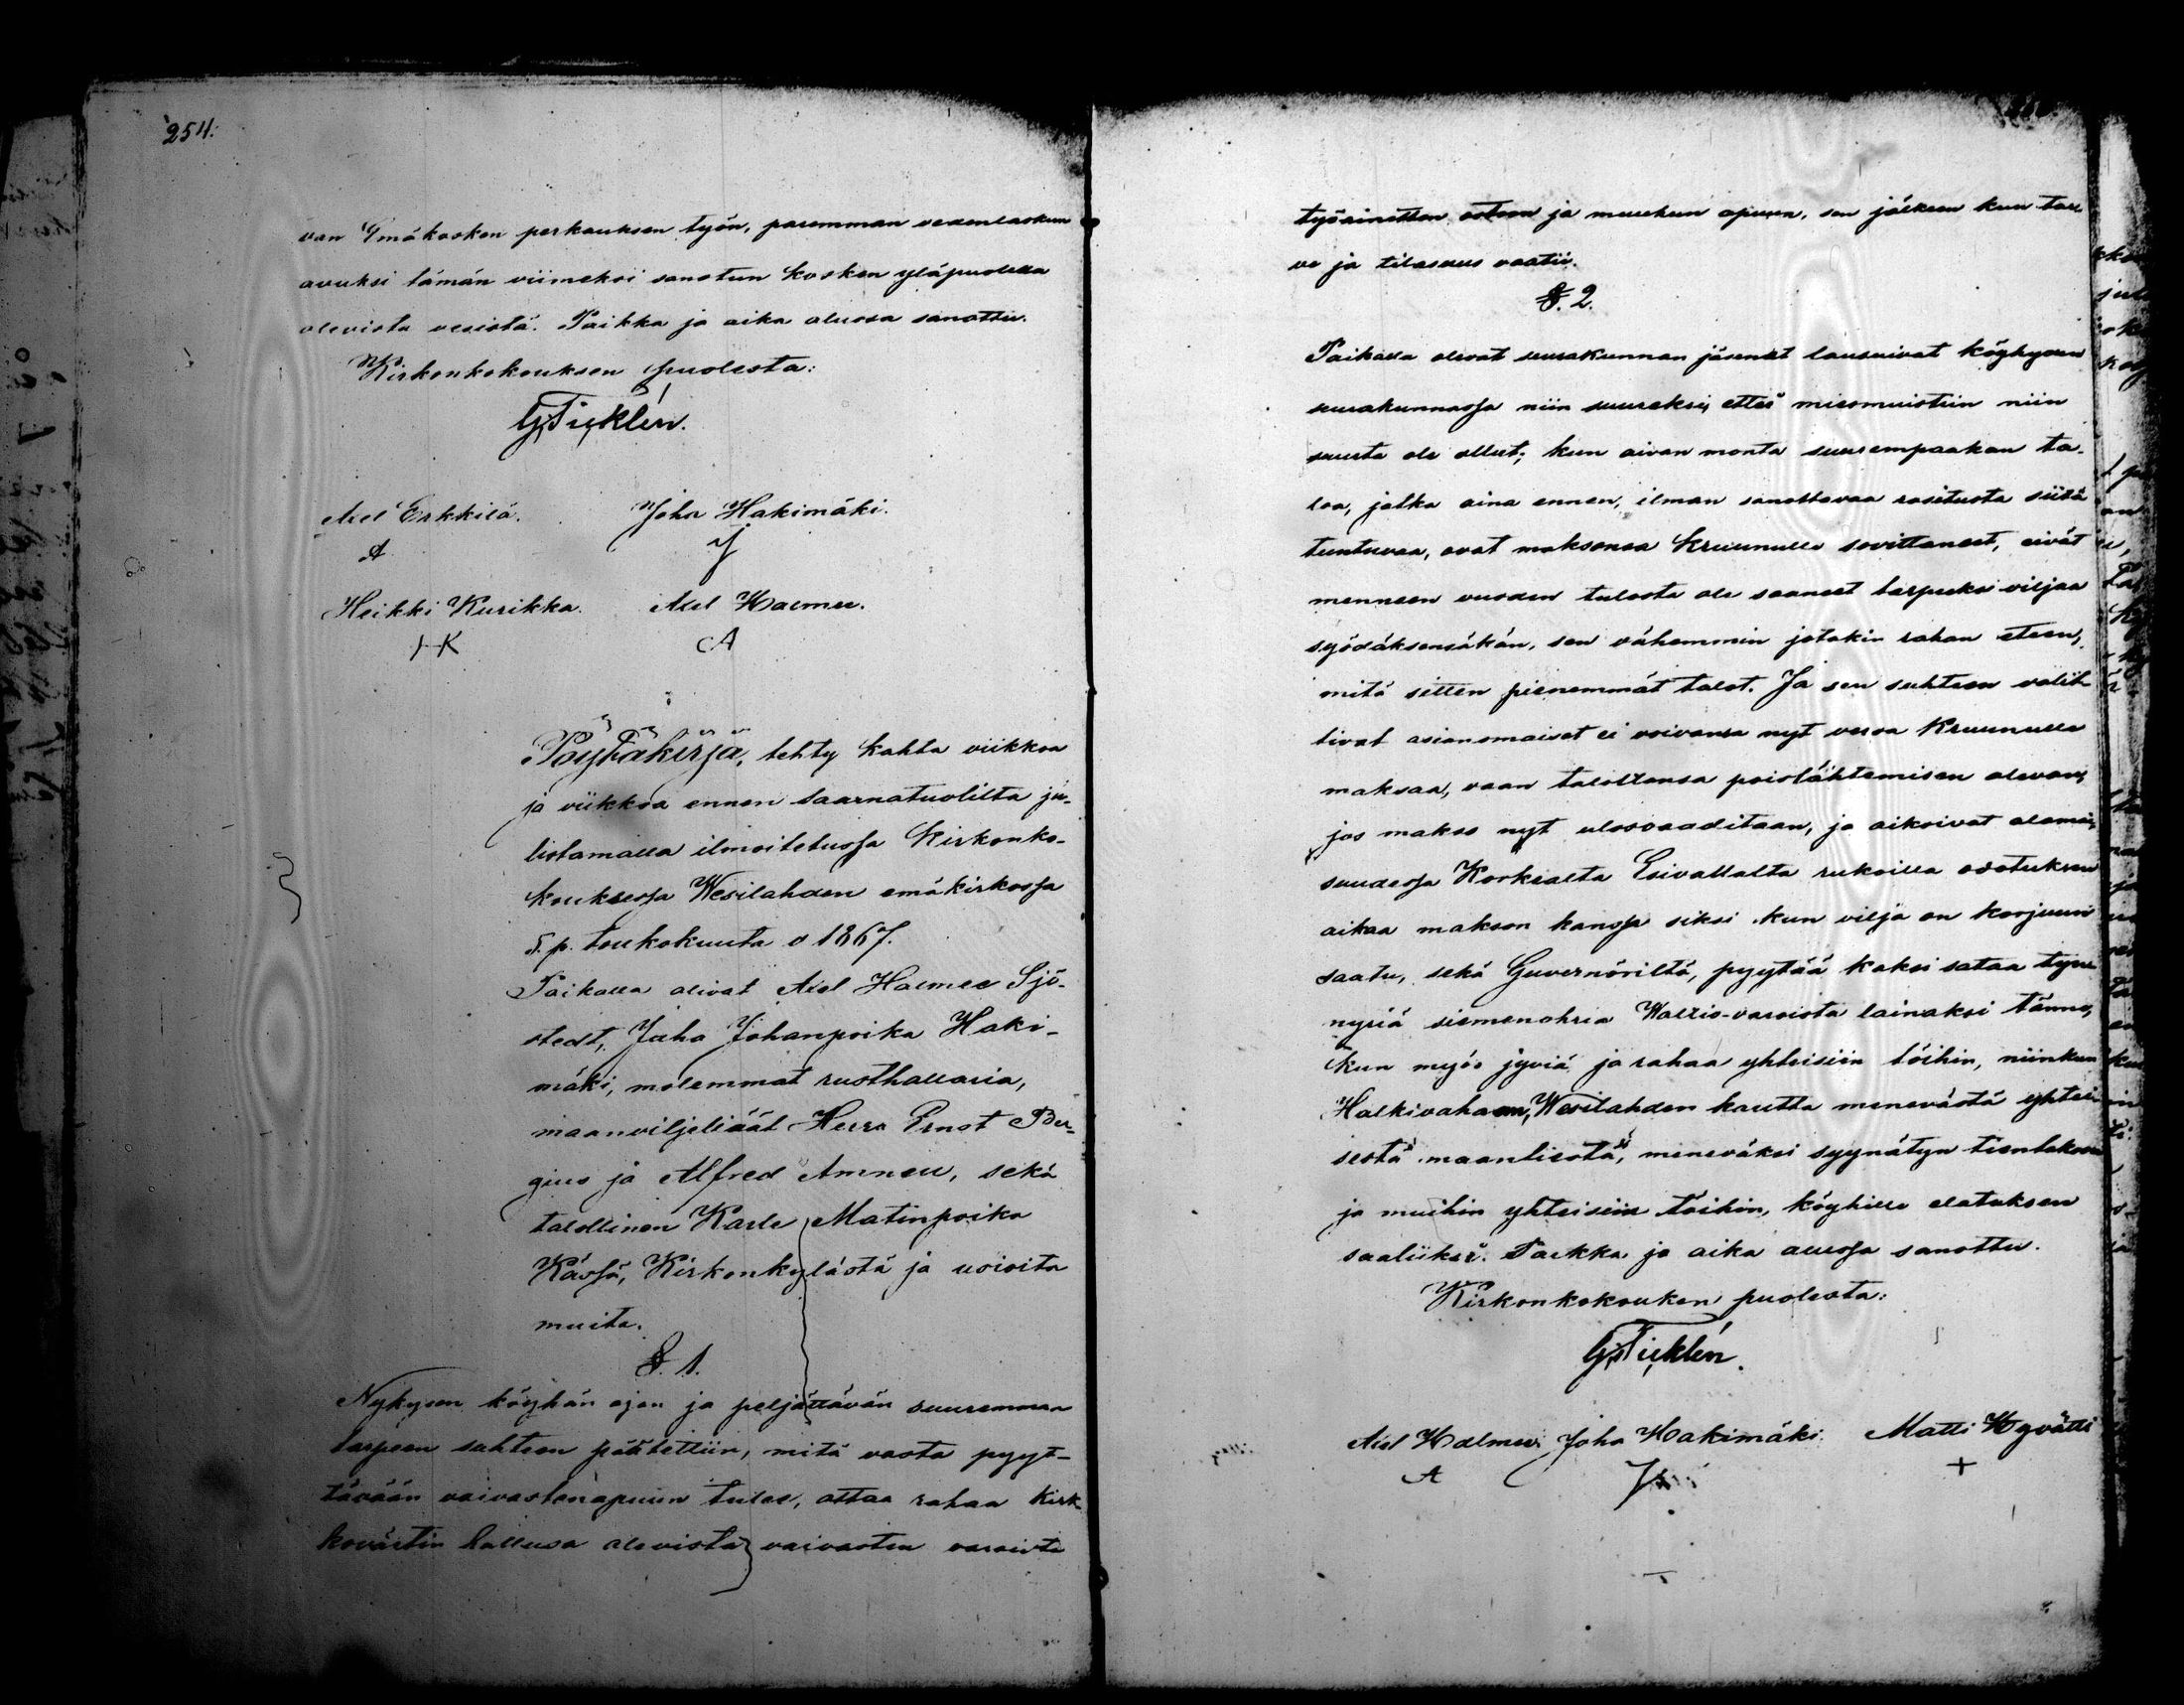 254.
van Ämäkosken perkauksen työn, paremman vedenlaskun
avuksi tämän viimeksi sanotun kosken yläpuolella
olevista vesistä. Paikka ja aika alussa sanottu.
Kirkonkokouksen puolesta:
G. Ticklén.
Axel Erkkilä. Joha Hakimäki.
A J
Heikki Kurikka. Axel Halmee.
HK A
Pöytäkirja, tehty kahta viikkoa
ja viikkoa ennen saarnatuolilta ju-
listamalla ilmoitetussa Kirkonko-
kouksessa Wesilahden emäkirkossa
5. p. toukokuuta v 1867.
Paikalla olivat Axel Halmee Sjö-
stedt, Juha Johanpoika Haki-
mäki, molemmat rusthollaria,
maanviljeliäät Herra Ernst Ber-
gius ja Alfred Amnell, sekä
talollinen Karle Matinpoika
Kässä, Kirkonkylästä ja usioita
muita.
§. 1.
Nykysen köyhän ajan ja peljättävän suuremman
tarpeen suhteen päätettiin, mitä vasta pyyt-
tävään vaivastenapuun tulee, ottaa rahaa Kirk-
kovärtin hallussa olevista vaivasten varoista
työaineitten ostoon ja muuhun apuun, sen jälkeen kun tar-
ve ja tilaisuus vaatii.
§. 2.
Paikalla olevat seurakunnan jäsenet lausuivat köyhyyden
seurakunnassa niin suureksi, ettei miesmuistiin niin
suurta ole ollut; kun aivan monta suurempaakan ta-
loa, jotka aina ennen, ilman sanottavaa rasitusta siitä
tuntuvaa, ovat maksonsa Kruunulle sovittaneet, eivät
menneen vuoden tulosta ole saaneet tarpeeksi viljaa
syödäksensäkän, sen vähemmin jotakin rahan eteen,
mitä sitten pienemmät talot. Ja sen suhteen valit-
tivat asianomaiset ei voivansa nyt veroa Kruunulle
maksaa, vaan taloiltansa poislähtemisen olevan,
jos makso nyt ulosvaaditaan, ja aikoivat alamai-
suudessa Korkealta Esivallalta rukoilla odotuksen
aikaa makson kanssa siksi kun vilja on korjuun
saatu, sekä Guvernöriltä, pyytää kaksi sataa tyn-
nyriä siemenohria Waltio-varoista lainaksi tänne,
kun myös jyviä ja rahaa yhteisiin töihin, niinkun
Halkivahaan, Wesilahden kautta menevästä yhtei-
sestä maantiestä, meneväksi syynätyn tientekoon
ja muihin yhteisiin töihin, köyhille elatuksen
saaliiksi. Paikka ja aika alussa sanottu.
Kirkonkokouken puolesta:
G. Ticklén.
Axel Halmee Joha Hakimäki. Matti Hyvätti
A J +